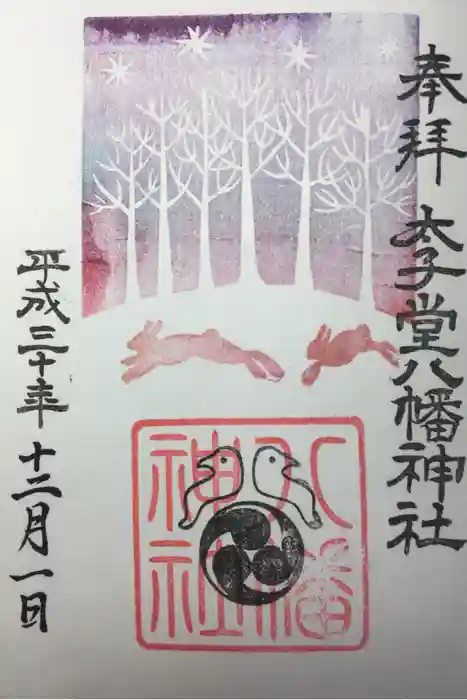 奉拝
太子堂八幡神社
八幡
神社
平成三十年十二月一日